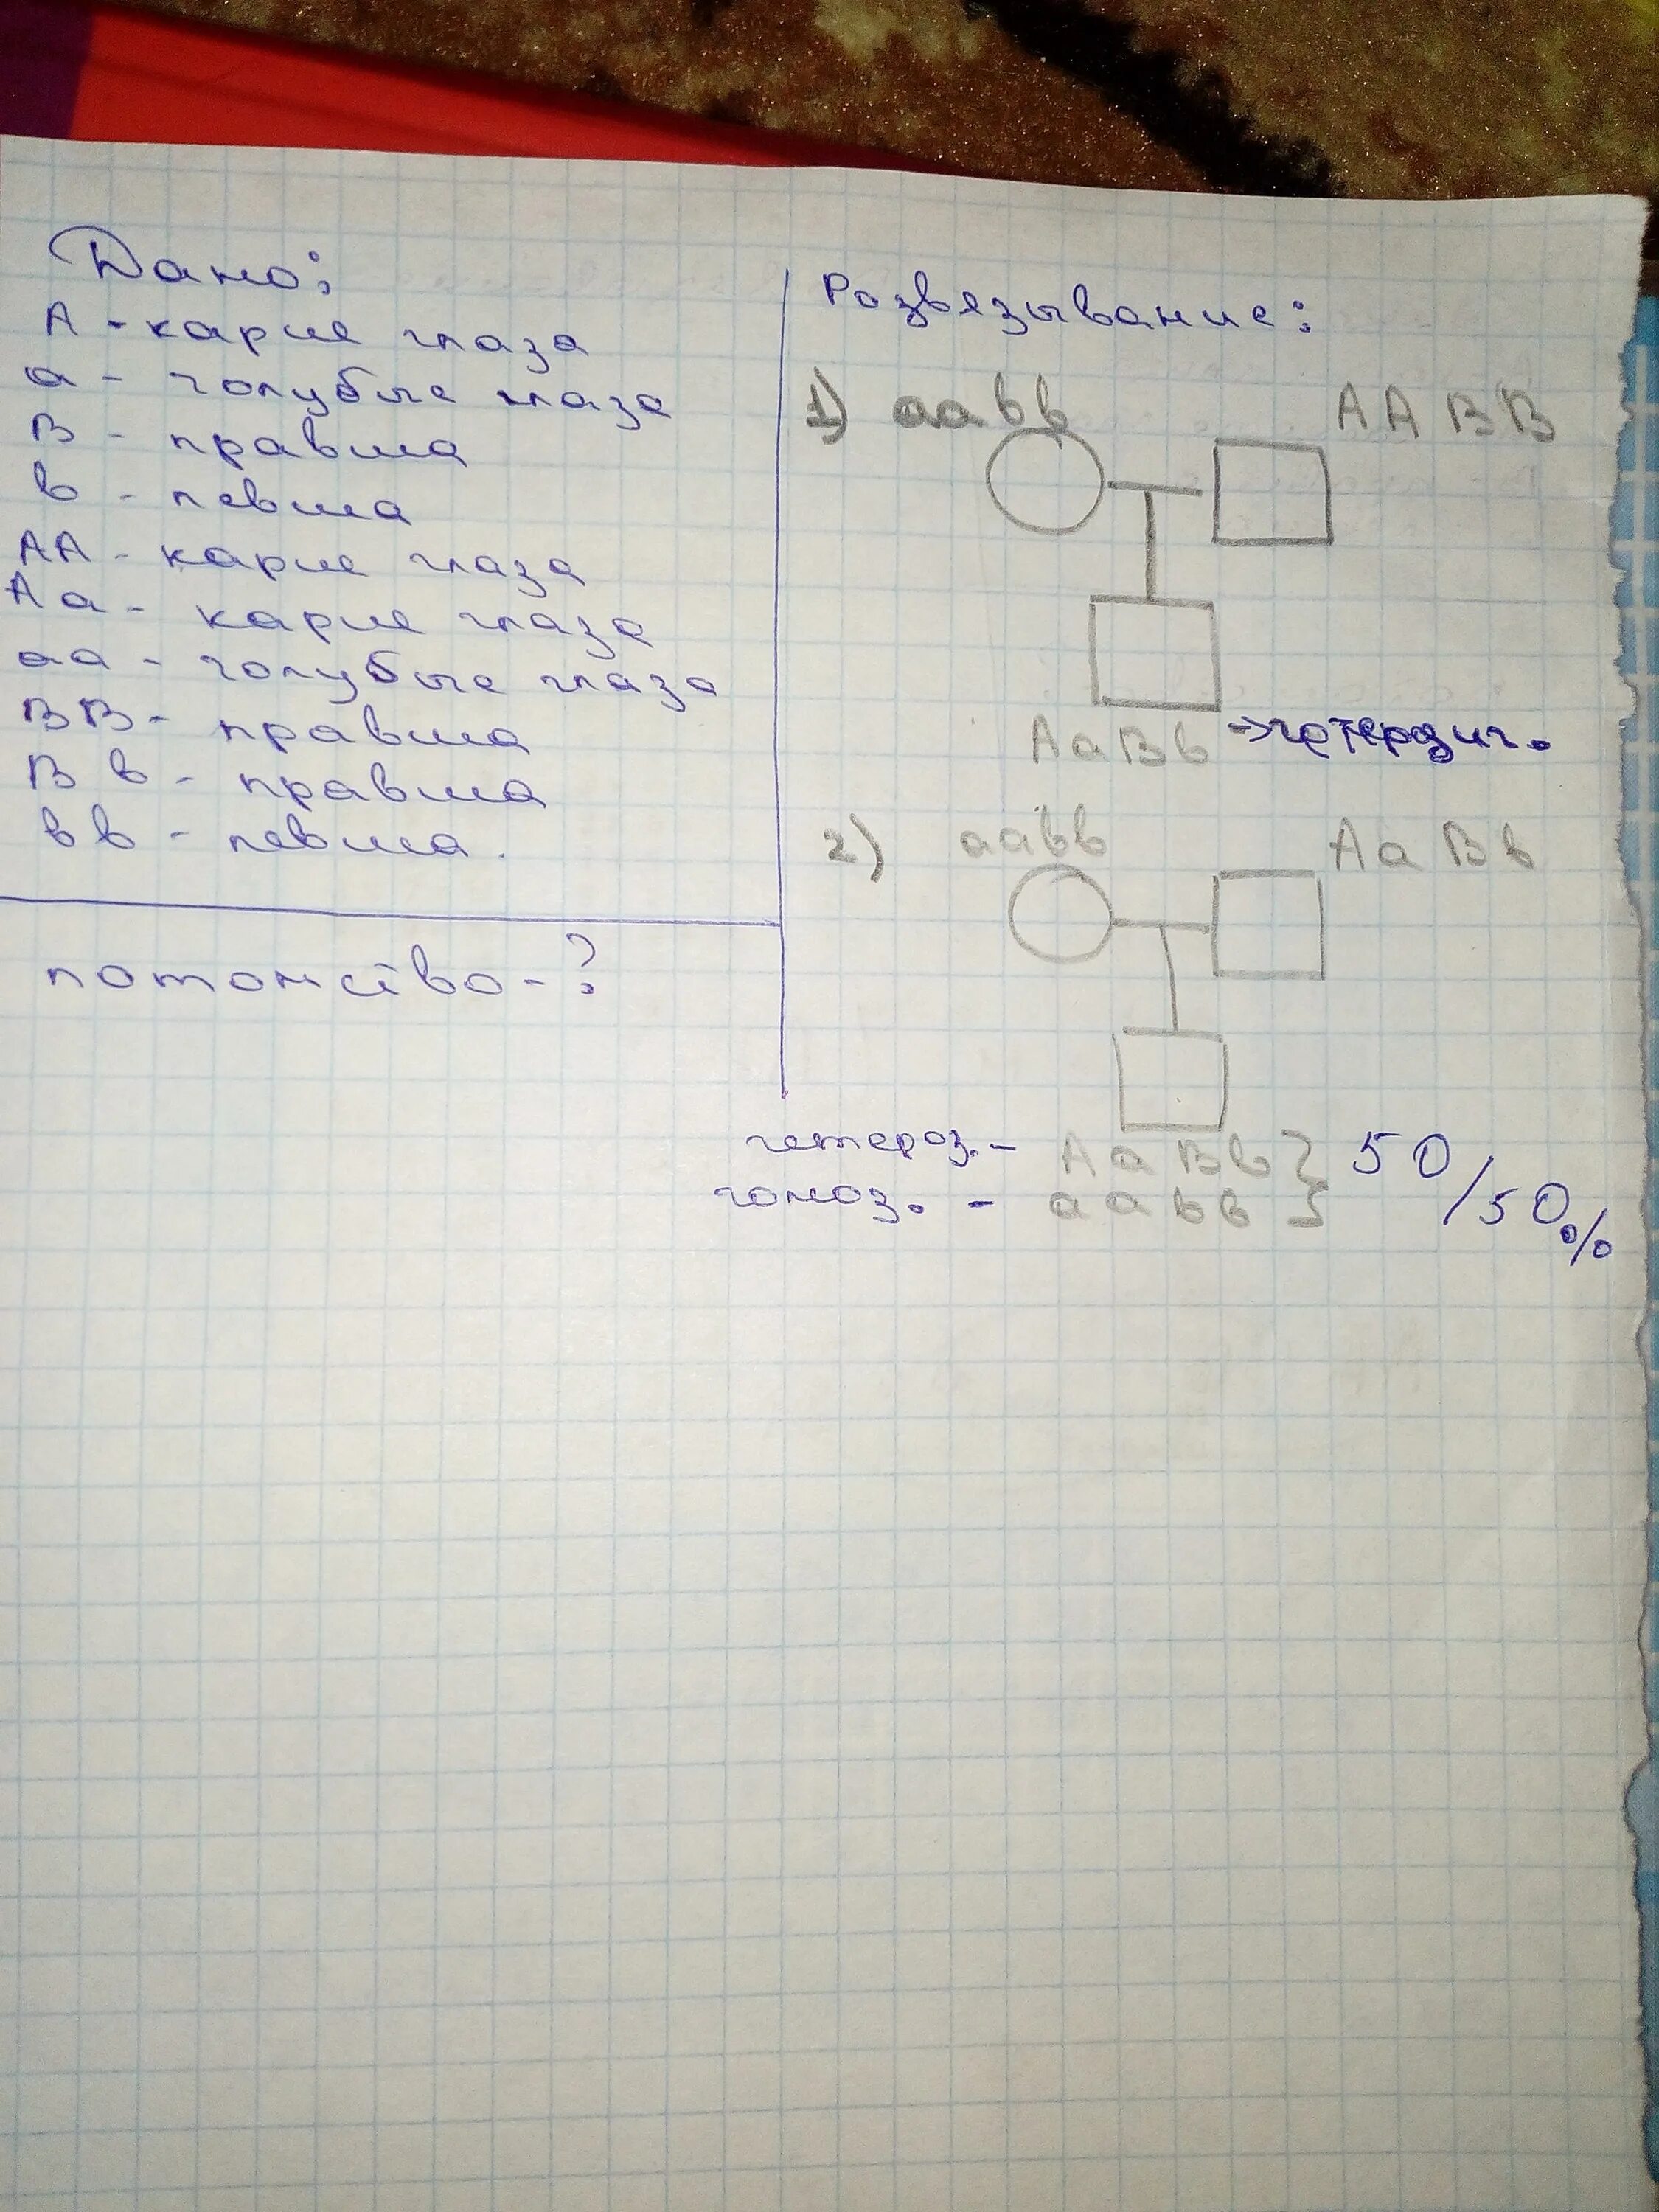 Дано:
А - карие глаза
а - голубые глаза
В - правша
в - левша
АА - карие глаза
Аа - карие глаза
аа - голубые глаза
ВВ - правша
Вв - правша
вв - левша.
потомство - ?
Розвязывание:
1) ааbb ААВВ
АаВв → гетерозиг.
2) ааbb АаВв
гетероз. - АаВв } 50/50%
гомоз. - аавв